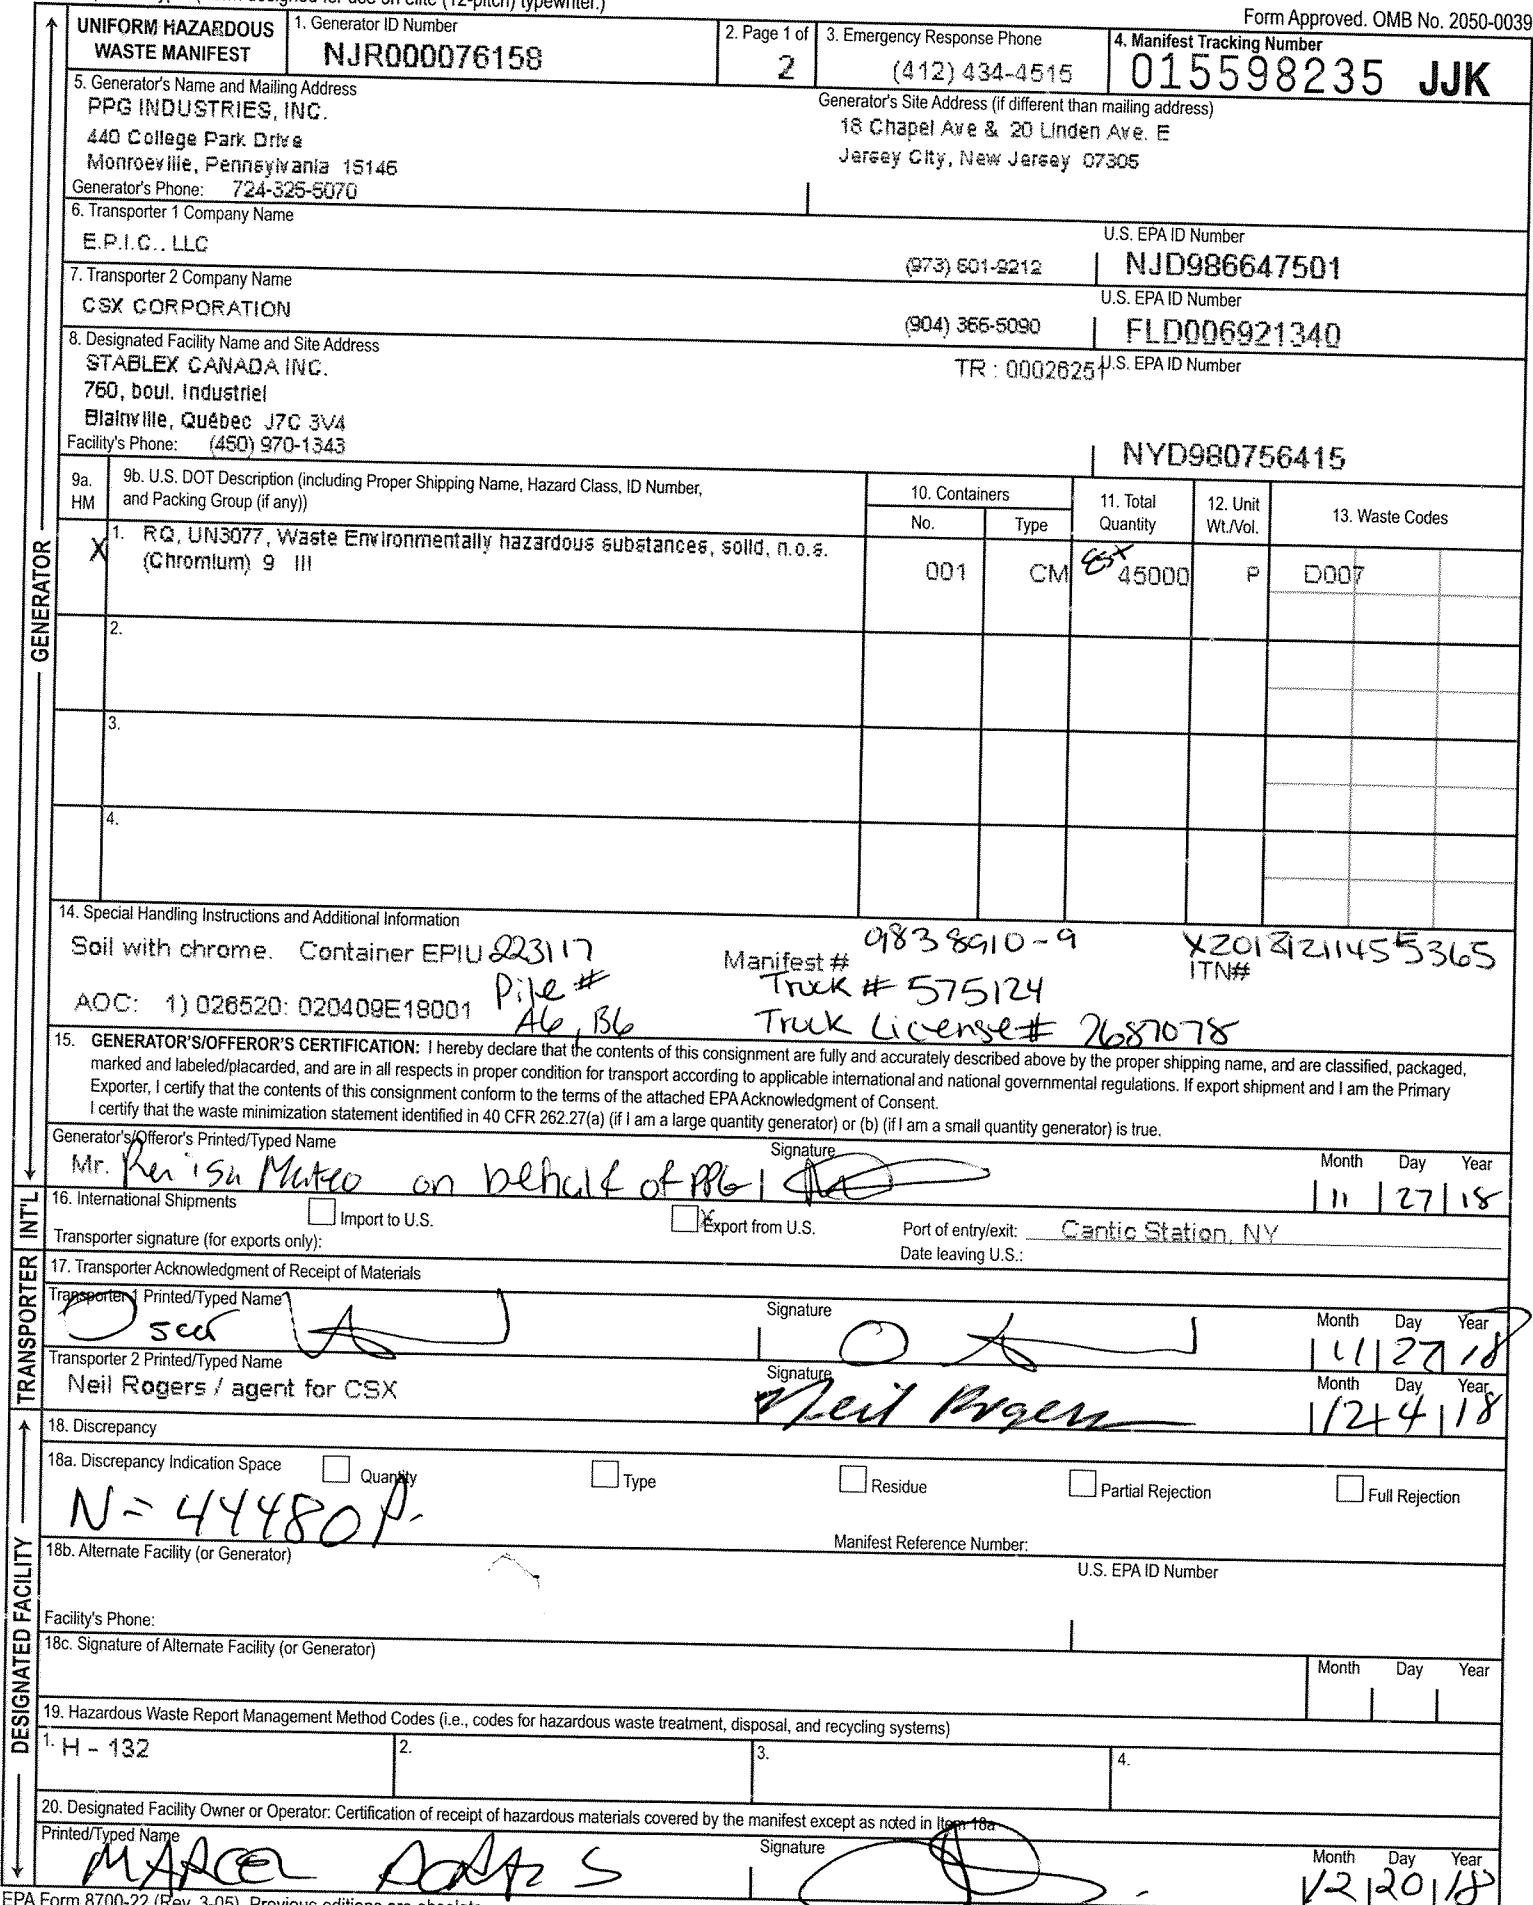 Form Approved. OMB No. 2050-0039
UNIFORM HAZARDOUS WASTE MANIFEST
1. Generator ID Number
NJR000076158
2. Page 1 of
2
3. Emergency Response Phone
(412) 434-4515
4. Manifest Tracking Number
015598235 JJK
5. Generator's Name and Mailing Address
PPG INDUSTRIES, INC.
440 College Park Drive
Monroeville, Pennsylvania 15146
Generator's Phone: 724-325-5070
Generator's Site Address (if different than mailing address)
18 Chapel Ave & 20 Linden Ave. E
Jersey City, New Jersey 07305
6. Transporter 1 Company Name
E.P.I.C., LLC
(973) 601-9212
U.S. EPA ID Number
NJD986647501
7. Transporter 2 Company Name
CSX CORPORATION
(904) 366-5090
U.S. EPA ID Number
FLD006921340
8. Designated Facility Name and Site Address
STABLEX CANADA INC.
760, boul. Industriel
Blainville, Québec J7C 3V4
Facility's Phone: (450) 970-1343
TR : 00026251
U.S. EPA ID Number
NYD980756415
9a. HM
9b. U.S. DOT Description (including Proper Shipping Name, Hazard Class, ID Number, and Packing Group (if any))
10. Containers
No.
Type
11. Total Quantity
12. Unit Wt./Vol.
13. Waste Codes
X
1. RQ, UN3077, Waste Environmentally hazardous substances, solid, n.o.s.
(Chromium) 9 III
001
CM
45000
P
D007
2.
3.
4.
14. Special Handling Instructions and Additional Information
Soil with chrome. Container EPIU 223117
Manifest # 9838910-9
X20181211455365
ITN#
AOC: 1) 026520: 020409E18001
Pile #
A6, B6
Truck # 575124
Truck License # 2687078
15. GENERATOR'S/OFFEROR'S CERTIFICATION: I hereby declare that the contents of this consignment are fully and accurately described above by the proper shipping name, and are classified, packaged,
marked and labeled/placarded, and are in all respects in proper condition for transport according to applicable international and national governmental regulations. If export shipment and I am the Primary
Exporter, I certify that the contents of this consignment conform to the terms of the attached EPA Acknowledgment of Consent.
I certify that the waste minimization statement identified in 40 CFR 262.27(a) (if I am a large quantity generator) or (b) (if I am a small quantity generator) is true.
Generator's/Offeror's Printed/Typed Name
Mr. Mateo on behalf of PPG
Signature
Month Day Year
11 27 18
16. International Shipments
Import to U.S.
X
Export from U.S.
Port of entry/exit: Cantic Station, NY
Transporter signature (for exports only):
Date leaving U.S.:
17. Transporter Acknowledgment of Receipt of Materials
Transporter 1 Printed/Typed Name
Oscar
Signature
Month Day Year
11 27 18
Transporter 2 Printed/Typed Name
Neil Rogers / agent for CSX
Signature
Neil Rogers
Month Day Year
12 4 18
18. Discrepancy
18a. Discrepancy Indication Space
Quantity
Type
Residue
Partial Rejection
Full Rejection
N = 44480 P.
Manifest Reference Number:
18b. Alternate Facility (or Generator)
U.S. EPA ID Number
Facility's Phone:
18c. Signature of Alternate Facility (or Generator)
Month Day Year
19. Hazardous Waste Report Management Method Codes (i.e., codes for hazardous waste treatment, disposal, and recycling systems)
1. H - 132
2.
3.
4.
20. Designated Facility Owner or Operator: Certification of receipt of hazardous materials covered by the manifest except as noted in Item 18a
Printed/Typed Name
MARCEL
Signature
Month Day Year
12 20 18
GENERATOR
INT'L
TRANSPORTER
DESIGNATED FACILITY
EPA Form 8700-22 (Rev. 3-05) Previous editions are obsolete.